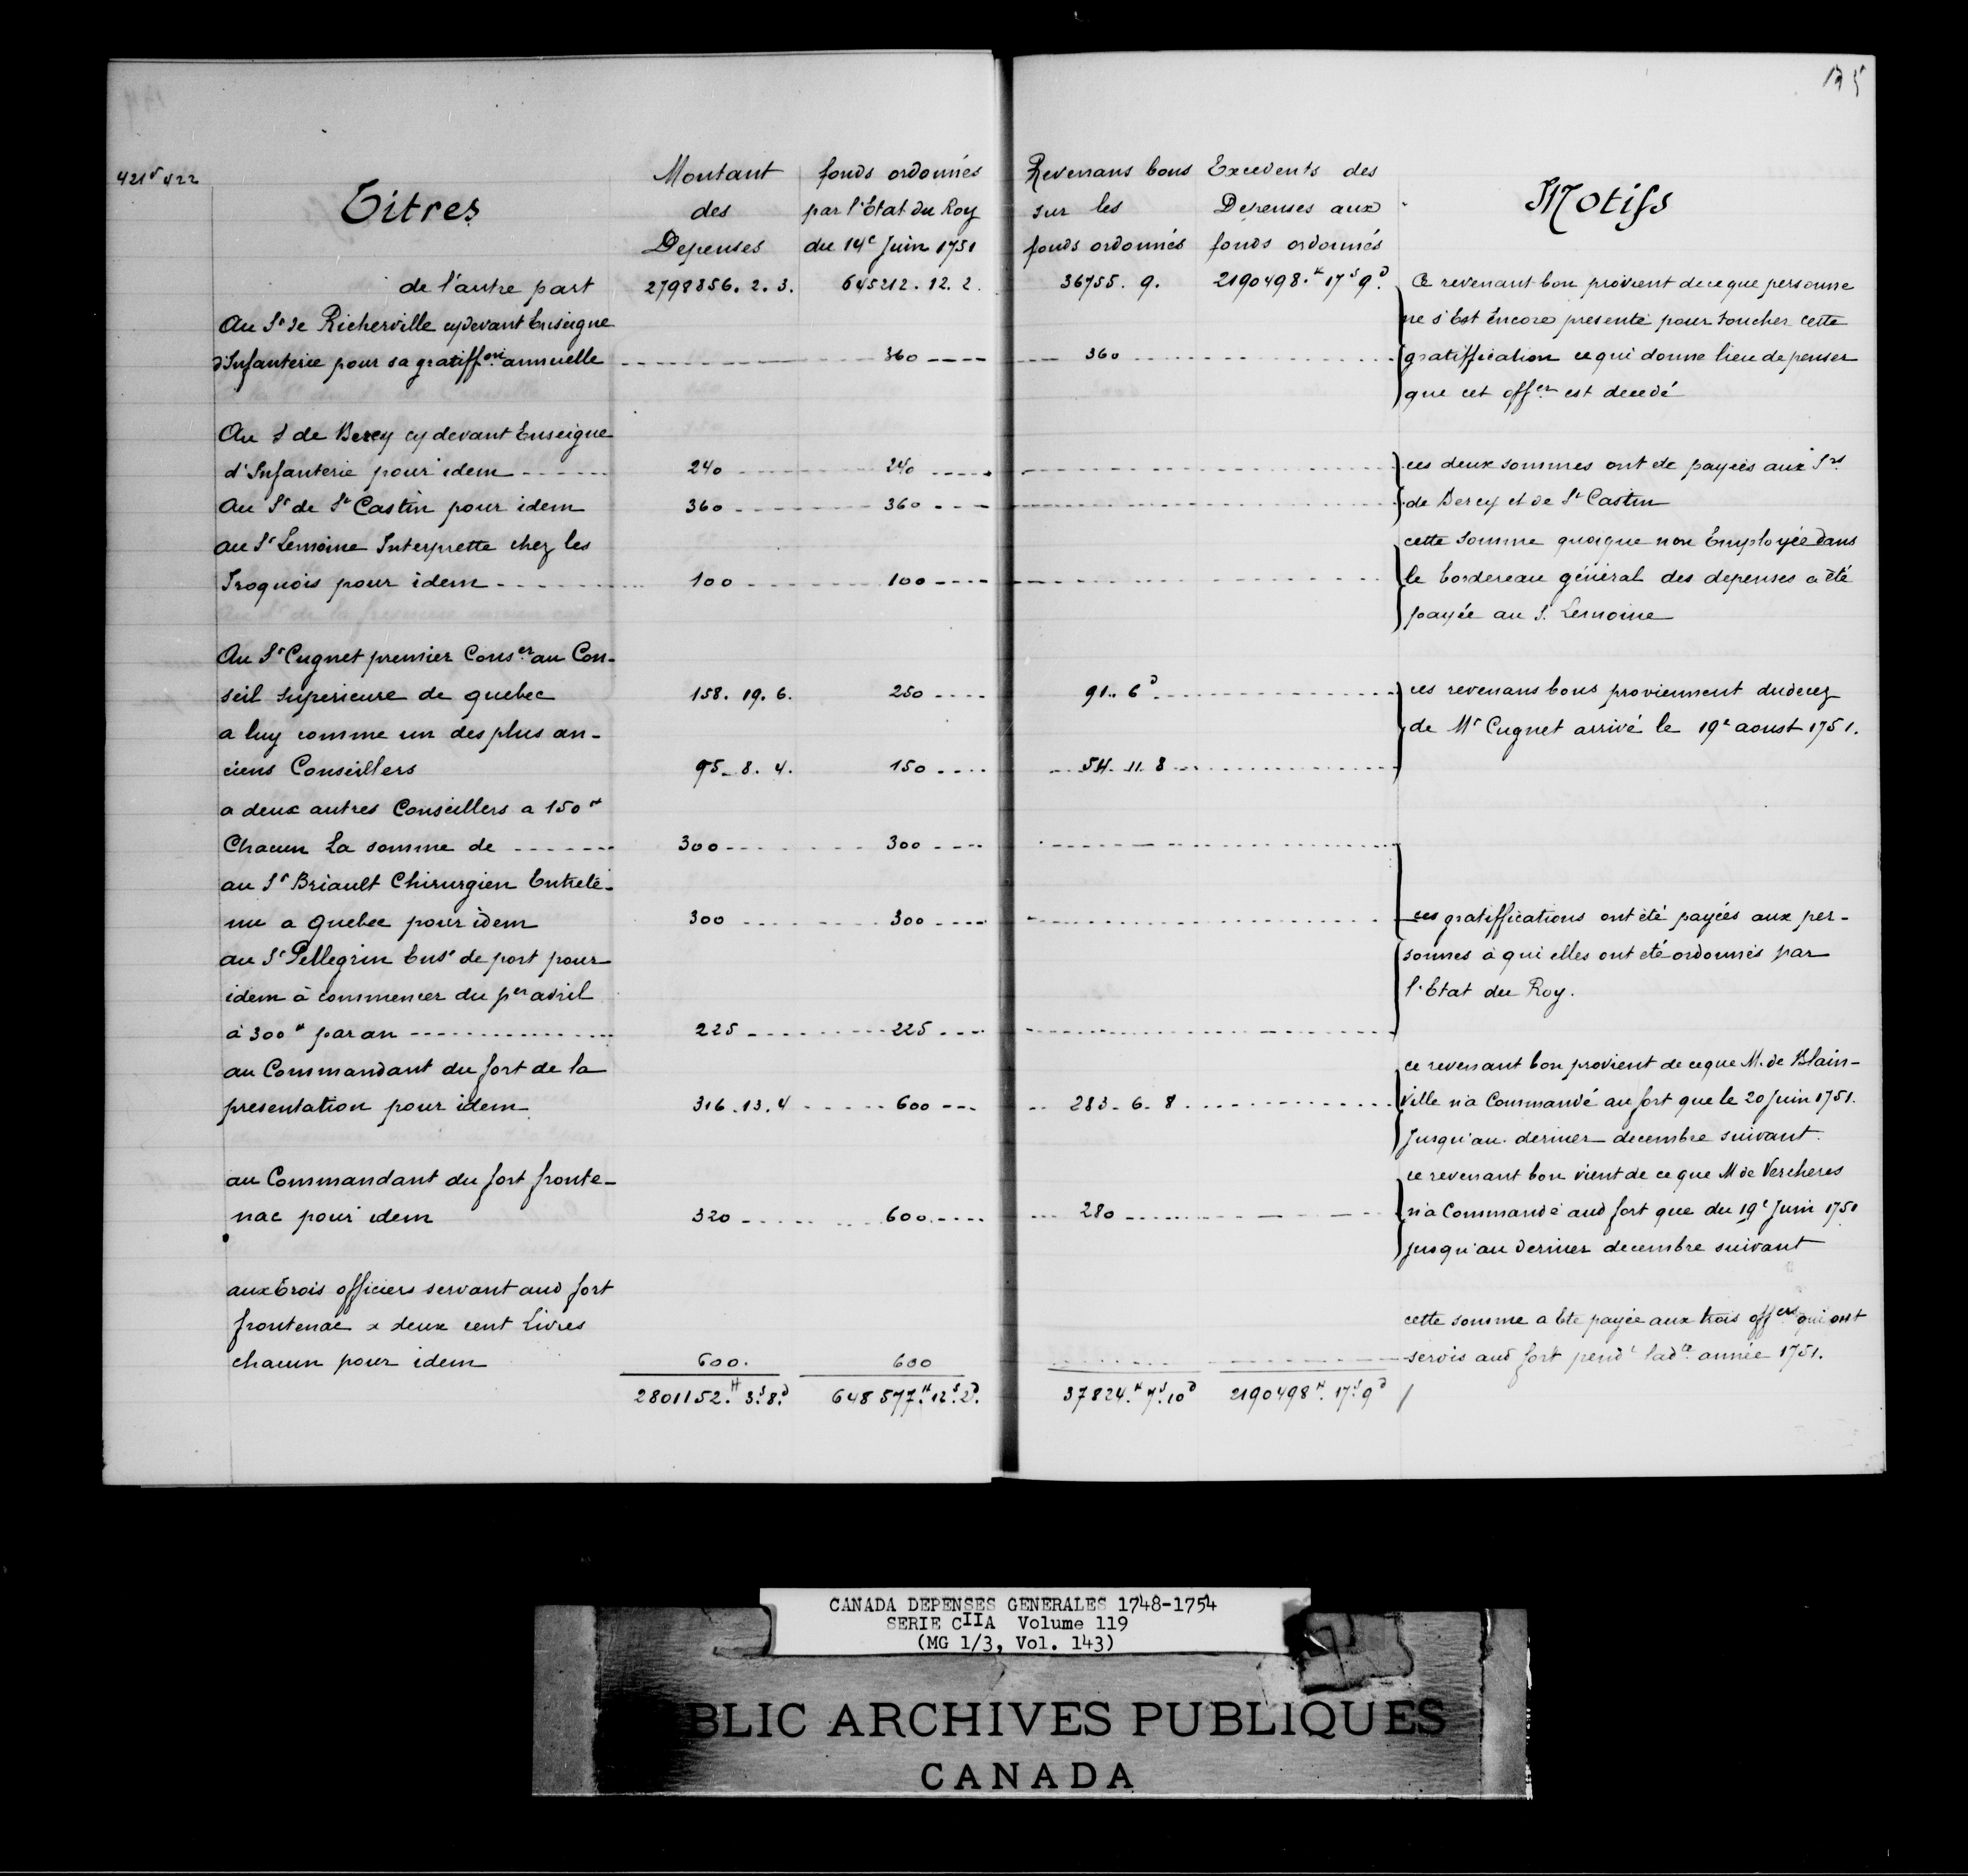 175
421v 422
Titres
Montant
des
Depenses
fonds ordonnés
par l'Etat du Roy
du 14e Juin 1751
Revenans bons
sur les
fonds ordonnés
Excedents des
Depenses aux
fonds ordonnés
Motifs
de l'autre part 2798856. 2. 3. 645212. 12. 2. 36755. 9. 2190498.# 17s 9d. Ce revenant bon provient de ce que personne
Au Sr de Richerville cydevant Enseigne ne s'Est Encore presenté pour toucher cette
d'Infanterie pour sa gratiffon annuelle 360 360 gratiffication ce qui donne lieu de penser
que cet offer est decedé
Au S de Bercy cy devant Enseigne
d'Infanterie pour idem 240 240 ces deux sommes ont ete payées aux Srs
Au Sr de St Castin pour idem 360 360 de Bercy et de St Castin
au Sr Lemoine Interprette chez les cette somme quoique non Employée dans
Iroquois pour idem 100 100 le bordereau général des depenses a été
payée au S. Lemoine
Au Sr Cugnet premier Conser au Con-
seil Superieure de quebec 158. 19. 6. 250 91.. 6d. ces revenans bons proviennent du decez
a luy comme un des plus an- de Mr Cugnet arrivé le 19e aoust 1751.
ciens Conseillers 95. 8. 4. 150 54. 11. 8
a deux autres Conseillers a 150#
Chacun La somme de 300 300
au Sr Briault Chirurgien Entrete-
nu a Quebec pour idem 300 300 ces gratiffications ont été payées aux per-
au Sr Pellegrin Ens. de port pour sonnes à qui elles ont été ordonnés par
idem à commencer du per avril l'Etat du Roy.
à 300# par an 225 225
au Commandant du fort de la ce revenant bon provient de ceque M. de Blain-
presentation pour idem 316. 13. 4 600 283. 6. 8 ville n'a Commandé au fort que le 20 Juin 1751.
Jusqu'au dernier decembre suivant.
au Commandant du fort fronte- ce revenant bon vient de ce que M de Vercheres
nac pour idem 320 600 280 n'a Commandé aud fort que du 19e Juin 1751
jusqu'au dernier decembre suivant
aux trois officiers servant aud fort
frontenac a deux cent Livres cette somme a Ete payée aux trois offers qui ont
chacun pour idem 600. 600 servis aud fort pendt ladte année 1751.
2801152.# 3s. 8d. 648577.# 12s. 2d. 37824.# 7s. 10d 2190498#. 17s. 9d
CANADA DEPENSES GENERALES 1748-1754
SERIE CIIA Volume 119
(MG 1/3, Vol. 143)
BLIC ARCHIVES PUBLIQUES
CANADA